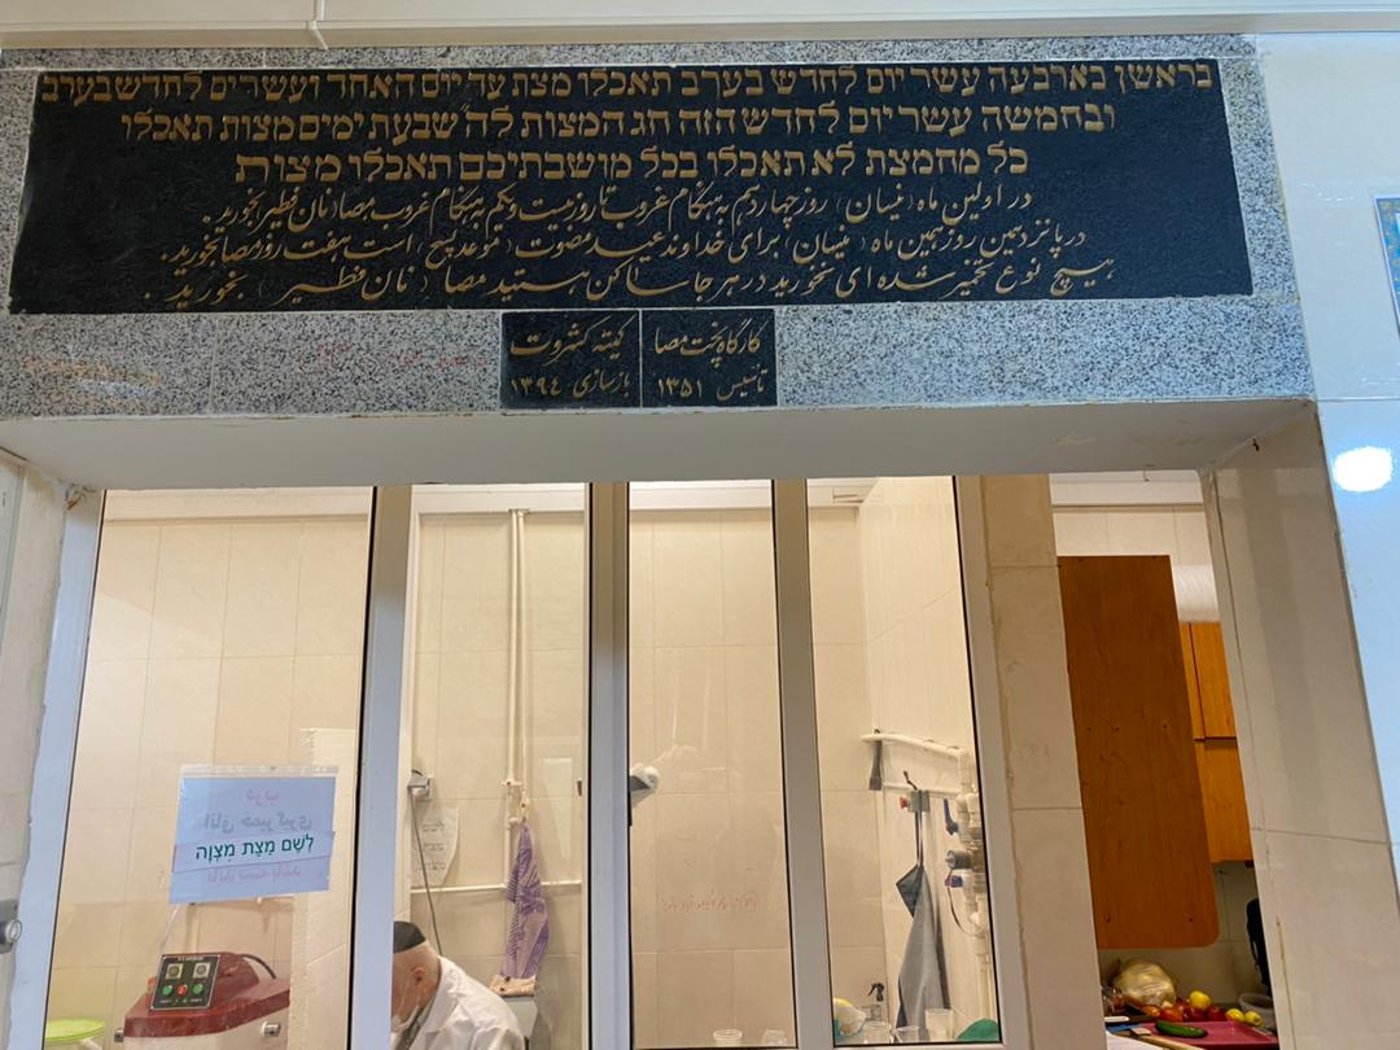 בראשן בארבעה עשר יום לחדש בערב תאכלו מצת עד יום האחד ועשרים לחדש בערב
ובחמשה עשר יום לחדש הזה חג המצות לה' שבעת ימים מצות תאכלו
כל מחמצת לא תאכלו בכל מושבתיכם תאכלו מצות
در اولین ماه (نیسان) روز چهاردهم به هنگام غروب تا روز بیست و یکم به هنگام غروب مصا (نان فطیر) بخورید.
در پانزدهمین روز همین ماه (نیسان) برای خداوند عید مصوت (موعد پسح) است هفت روز مصا بخورید.
هیچ نوع تخمیر شده ای نخورید در هر جا ساکن هستید مصا (نان فطیر) بخورید.
کارگاه پخت مصا
تاسیس ۱۳۵۱
کمیته کشروت
بازسازی ۱۳۹٤
לְשֵׁם מַצַּת מִצְוָה